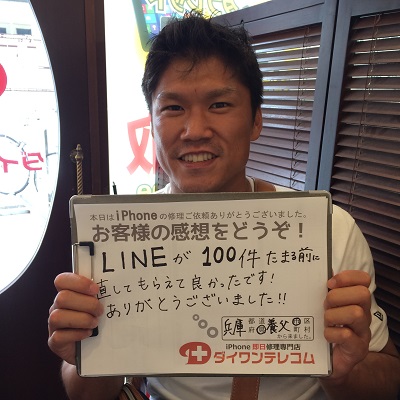 本日はiPhoneの修理ご依頼ありがとうございました。
お客様の感想をどうぞ！
LINEが100件たまる前に
直してもらえて良かったです！
ありがとうございました!!
兵庫 都道府県 養父 市区町村
から来ました。
iPhone 即日修理専門店
ダイワンテレコム